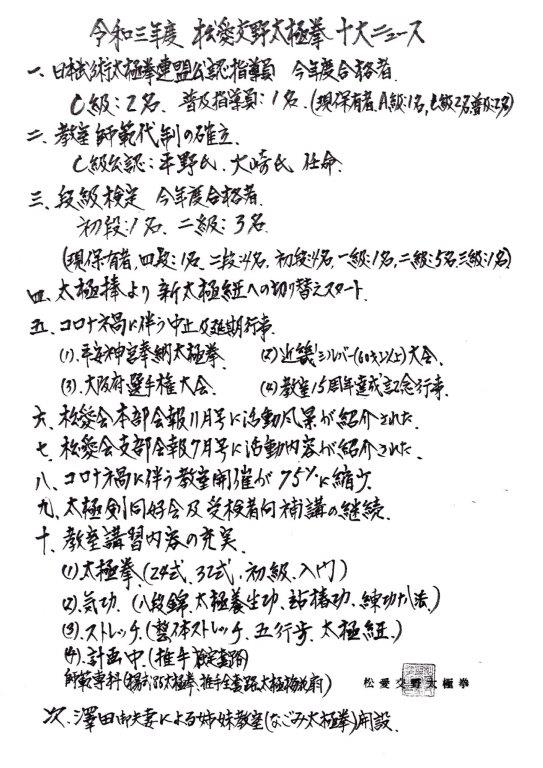 令和三年度 松愛交野太極拳 十大ニュース
一、日本武術太極拳連盟公認指導員 今年度合格者
C級:2名、普及指導員:1名、(現保有者、A級:1名、C級2名普及2名)
二、教室師範代制の確立
C級公認:平野氏、大崎氏 任命
三、段級検定 今年度合格者
初段:1名、二級:3名
(現保有者、四段:1名、二段:4名、初段:4名、一級:1名、二級:5名、三級:1名)
四、太極棒より新太極紐への切り替えスタート
五、コロナ禍に伴う中止及延期行事
(1)、平安神宮奉納太極拳 (2)近畿シルバー(60才以上)大会、
(3)、大阪府選手権大会、 (4)教室15周年達成記念行事、
六、松愛会本部会報11月号に活動風景が紹介された
七、松愛会支部会報7月号に活動内容が紹介された
八、コロナ禍に伴う教室開催が75%に縮少
九、太極剣同好会及受検者向補講の継続
十、教室講習内容の充実
(1)太極拳(24式、32式、初級、入門)
(2)、気功、(八段錦、太極養生功、站椿功、練功十八法)
(3)、ストレッチ、(整体ストレッチ、五行歩、太極紐、)
(4)、計画中、(推手 検定套路)
師範専科(楊式85太極拳、推手全套路、太極梅花剣)
松愛交野太極拳
次、澤田御夫妻による姉妹教室(なごみ太極拳)開設